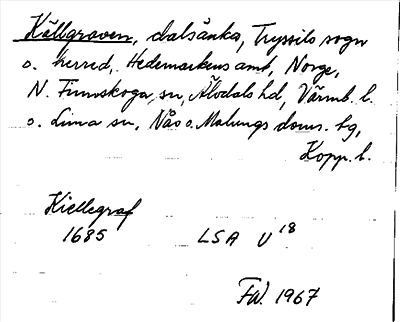 Källgraven, dalsänka, Tryssils sogn
o. herred, Hedemarkens amt, Norge,
N. Finnskoga sn, Älvdals hd, Värml. l.
o. Lima sn, Nås o. Malungs doms. tg,
Kopp. l.
Kiellegraf
1685
LSA U 18
FW. 1967